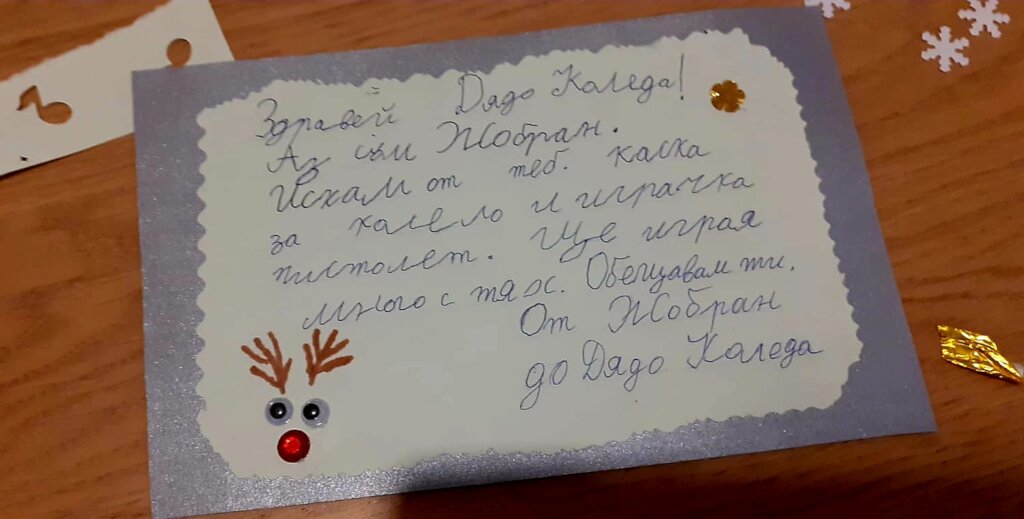 Здравей Дядо Коледа!
Аз съм Жобран.
Искам от теб. каска
за колело и играчка
пистолет. Ще играя
много с тях. Обещавам ти.
От Жобран
до Дядо Коледа